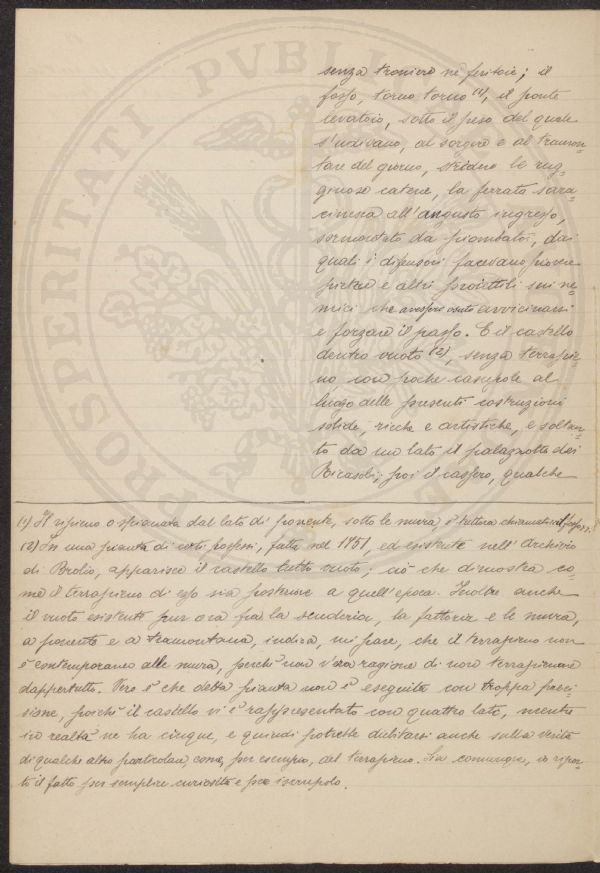 senza troniere nè feritoie; il
fosso, torno torno (1), il ponte
levatoio, sotto il peso del quale
s'udivano, al sorgere e al tramon-
tare del giorno, stridere le rug-
ginose catene, la ferrata sara-
cinesca all'angusto ingresso,
sormontato da piombatoi, dai
quali i difensori facevano piovere
pietre e altri proiettili sui ne-
mici che avessero osato avvicinarsi
e forzare il passo. E il castello
dentro vuoto (2), senza terrapie-
no, con poche casupole al
luogo delle presenti costruzioni
solide, ricche e artistiche, e soltan-
to da un lato il palazzotto dei
Ricasoli; poi il cassero, qualche
(1) Il ripieno o spianata dal lato di ponente, sotto le mura, è tuttora chiamata il fosso.
(2) In una pianta di certi possessi, fatta nel 1751, ed esistente nell'Archivio
di Brolio, apparisce il castello tutto vuoto; ciò che dimostra co-
me il terrapieno di esso sia posteriore a quell'epoca. Inoltre anche
il vuoto esistente pur ora fra la scuderia, la fattoria e le mura,
a ponente e a tramontana, indica, mi pare, che il terrapieno non
è contemporaneo alle mura, perchè non v'era ragione di non terrapienare
dappertutto. Vero è che detta pianta non è eseguita con troppa preci-
sione, poichè il castello vi è rappresentato con quattro lati, mentre
in realtà ne ha cinque, e quindi potrebbe dubitarsi anche sulla verità
di qualche altro particolare, come, per esempio, del terrapieno. Sia comunque, io ripor-
to il fatto per semplice curiosità e per iscrupolo.
PROSPERITATI PVBLI